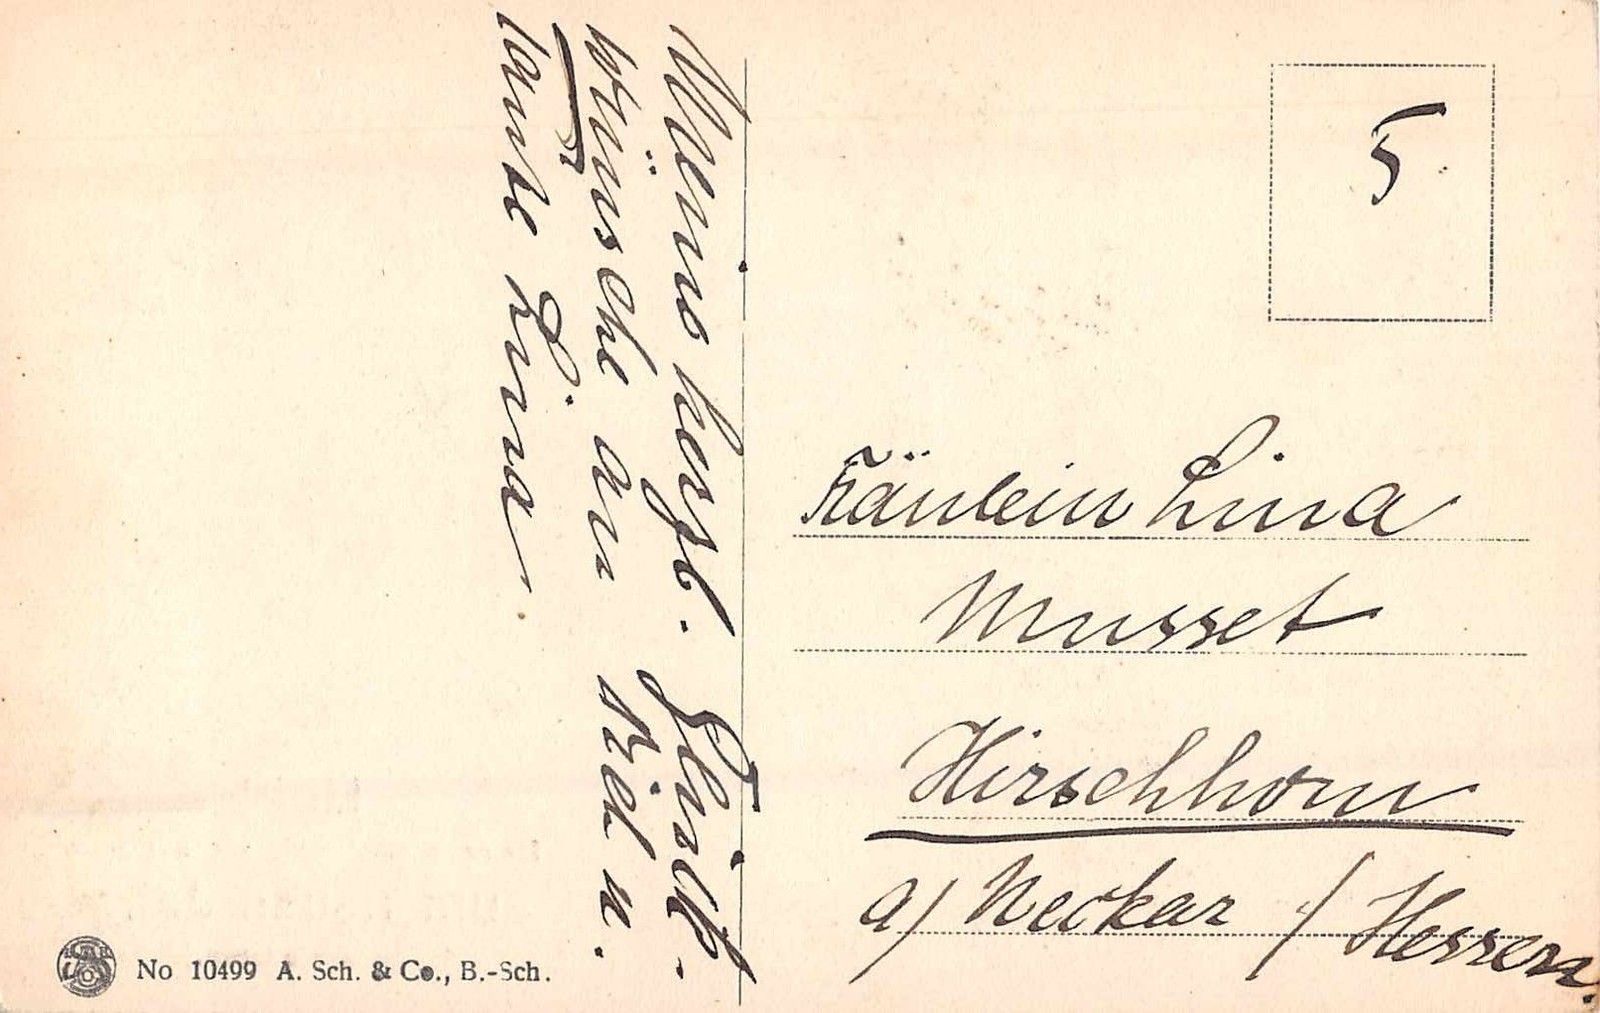 Meine herzl. Glück-
wünsche an Kid u.
Tante Lina
5
Fräulein Lina
Musset
Hirschhorn
a/ Neckar / Hessen.
No 10499 A. Sch. & Co., B.-Sch.